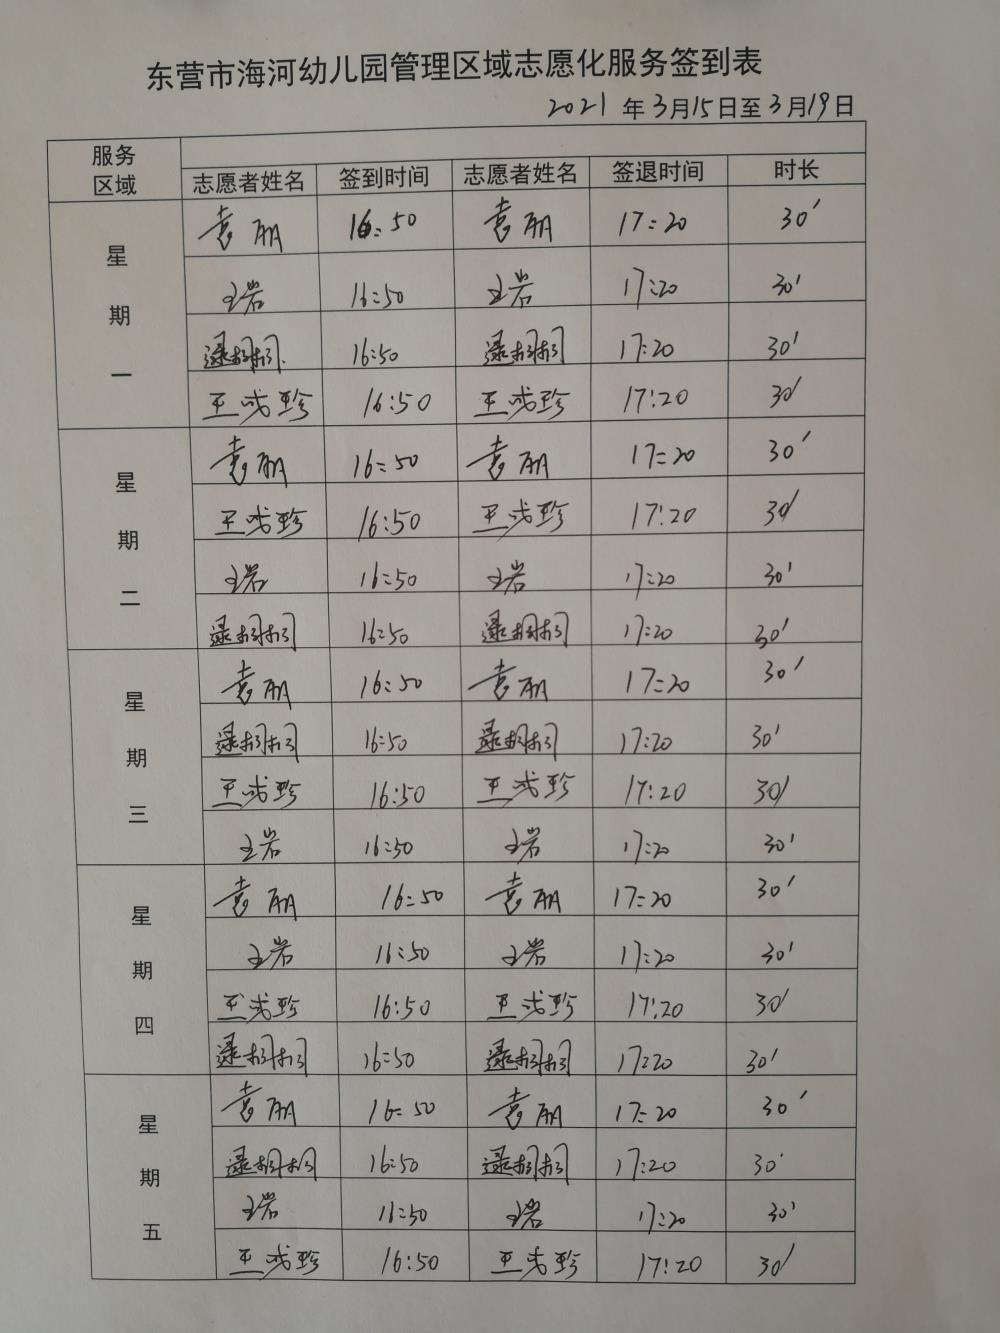 东营市海河幼儿园管理区域志愿化服务签到表
2021 年 3月15日至 3月19日
服务区域 志愿者姓名 签到时间 志愿者姓名 签退时间 时长
星期一
袁丽 16:50 袁丽 17:20 30'
王岩 16:50 王岩 17:20 30'
逯桐桐 16:50 逯桐桐 17:20 30'
王成珍 16:50 王成珍 17:20 30'
星期二
袁丽 16:50 袁丽 17:20 30'
王成珍 16:50 王成珍 17:20 30'
王岩 16:50 王岩 17:20 30'
逯桐桐 16:50 逯桐桐 17:20 30'
星期三
袁丽 16:50 袁丽 17:20 30'
逯桐桐 16:50 逯桐桐 17:20 30'
王成珍 16:50 王成珍 17:20 30'
王岩 16:50 王岩 17:20 30'
星期四
袁丽 16:50 袁丽 17:20 30'
王岩 16:50 王岩 17:20 30'
王成珍 16:50 王成珍 17:20 30'
逯桐桐 16:50 逯桐桐 17:20 30'
星期五
袁丽 16:50 袁丽 17:20 30'
逯桐桐 16:50 逯桐桐 17:20 30'
王岩 16:50 王岩 17:20 30'
王成珍 16:50 王成珍 17:20 30'